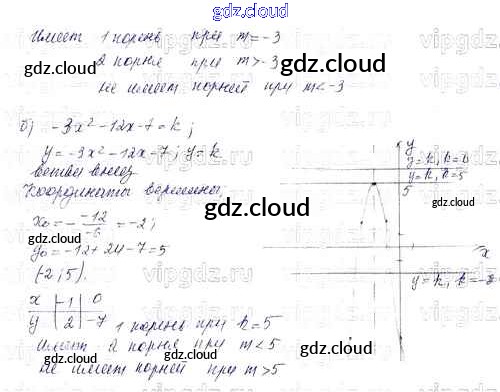 gdz.cloud
Имеет 1 корень при m=-3
2 корня при m>-3
не имеет корней при m<-3
б) -3x²-12x-7=k;
y=-3x²-12x-7; y=k
ветви вниз
Координаты вершины:
x₀=- -12/-6 =-2;
y₀=-12+24-7=5
(-2;5).
x -1 0
y 2 -7
1 корень при k=5
Имеет 2 корня при m<5
не имеет корней при m>5
y
y=k, k=6
y=k, k=5
5
x
y=k, k=-2
gdz.cloud
gdz.cloud
gdz.cloud
gdz.cloud
gdz.cloud
gdz.cloud
vipgdz.com